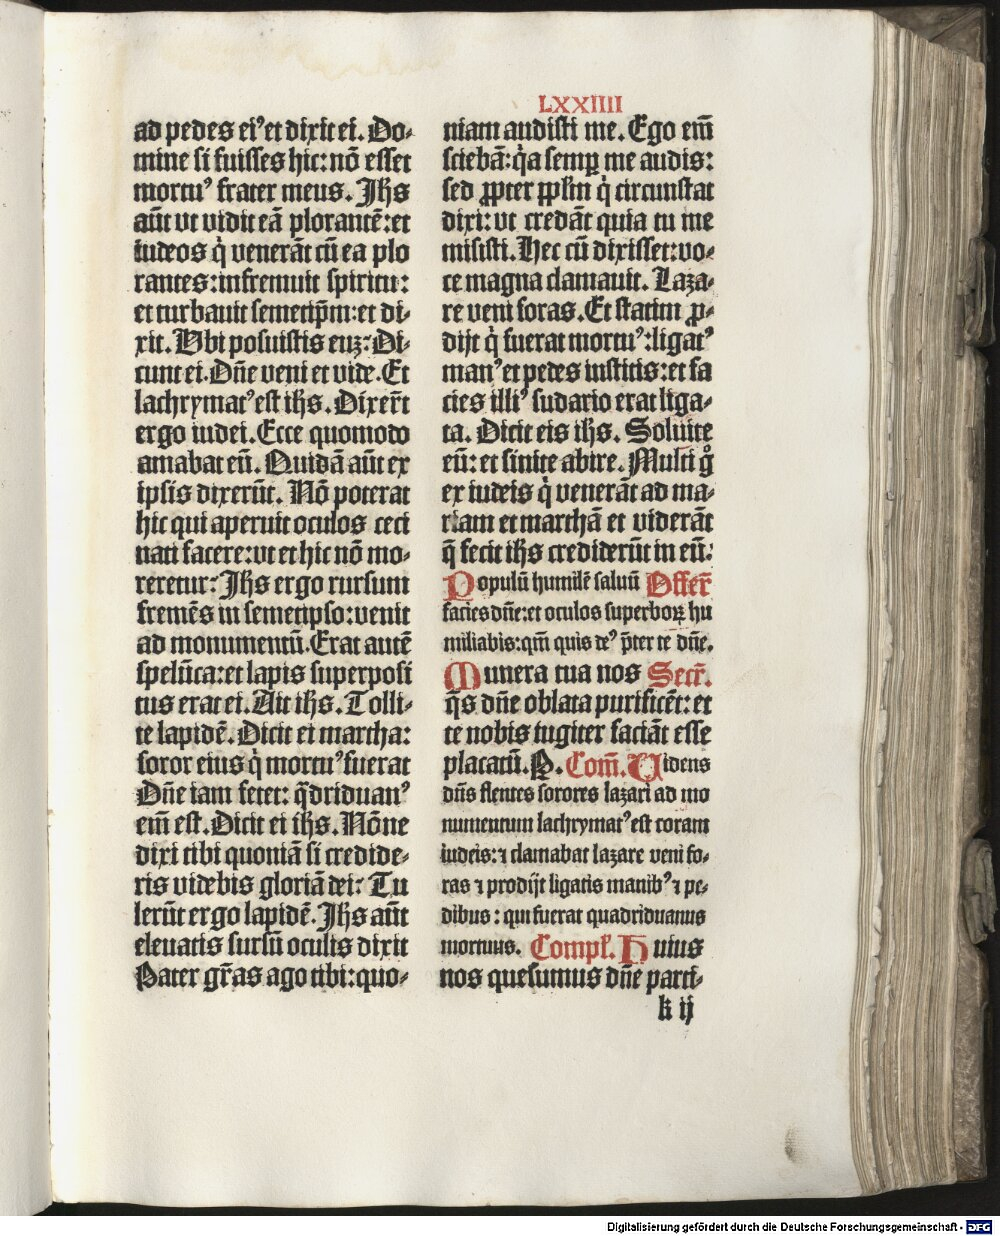 LXXIIII
ad pedes eiꝰ et dixit ei. Do-
mine si fuisses hic: nō esset
mortuꝰ frater meus. Jhs
aūt vt vidit eā plorantē: et
iudeos q̇ venerāt cū ea plo
rantes: infremuit spiritu:
et turbauit semetip̄m: et di-
xit. Vbi posuistis euꝫ: Di-
cunt ei. Dn̄e veni et vide. Et
lachrymatꝰ est ihs. Dixer̄t
ergo iudei. Ecce quomodo
amabat eū. Quidā aūt ex
ipsis dixerūt. Nō poterat
hic qui aperuit oculos ceci
nati facere: vt et hic nō mo-
reretur: Jhs ergo rursum
fremēs in semetipso: venit
ad monumentū. Erat autē
spelūca: et lapis superposi
tus erat ei. Ait ihs. Tolli-
te lapidē. Dicit ei martha:
soror eius q̇ mortuꝰ fuerat
Dn̄e iam fetet: q̄driduanꝰ
em̄ est. Dicit ei ihs. Nōne
dixi tibi quoniā si credide-
ris videbis gloriā dei: Tu
lerūt ergo lapidē. Jhs aūt
eleuatis sursū oculis dixit
Pater gr̄as ago tibi: quo-
niam audisti me. Ego em̄
sciebā: q̇a semꝑ me audis:
sed ꝓpter pplm̄ q̇ circunstat
dixi: vt credāt quia tu me
misisti. Hec cū dixisset: vo-
ce magna clamauit. Laza-
re veni foras. Et statim ꝓ-
dijt q̇ fuerat mortuꝰ: ligatꝰ
manꝰ et pedes institis: et fa
cies illiꝰ sudario erat liga-
ta. Dicit eis ihs. Soluite
eū: et sinite abire. Multi gͦ
ex iudeis q̇ venerāt ad ma-
riam et marthā et viderāt
q̄ fecit ihs crediderūt in eū:
Populū humilē saluū Offer̄
facies dn̄e: et oculos superboꝝ hu
miliabis: qm̄ quis deꝰ p̄ter te dn̄e.
Munera tua nos Secr̄.
q̄s dn̄e oblata purificēt: et
te nobis iugiter faciāt esse
placatū. P. Com̄. Videns
dn̄s flentes sorores lazari ad mo
numentum lachrymatꝰ est coram
iudeis: ⁊ clamabat lazare veni fo-
ras ⁊ prodijt ligatis manibꝰ ⁊ pe-
dibus: qui fuerat quadriduanus
mortuus. Compl. Huius
nos quesumus dn̄e parti-
k ij
Digitalisierung gefördert durch die Deutsche Forschungsgemeinschaft - DFG